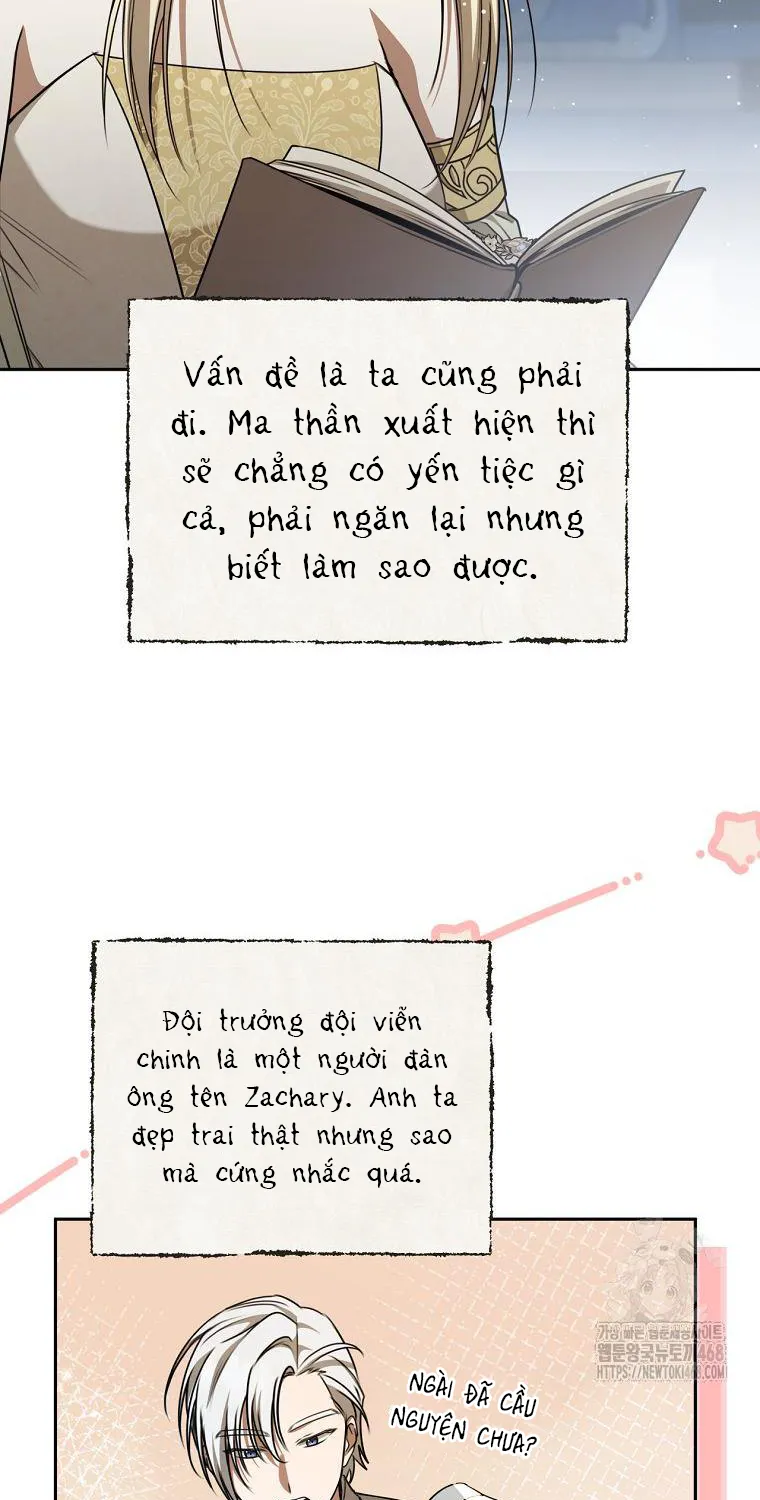 Vấn đề là ta cũng phải
đi. Ma thần xuất hiện thì
sẽ chẳng có yến tiệc gì
cả, phải ngăn lại nhưng
biết làm sao được.
Đội trưởng đội viễn
chinh là một người đàn
ông tên Zachary. Anh ta
đẹp trai thật nhưng sao
mà cứng nhắc quá.
가장 빠른 웹툰제공사이트
웹툰왕국뉴토끼468
HTTPS://NEWTOKI468.COM
NGÀI ĐÃ CẦU
NGUYỆN CHƯA?